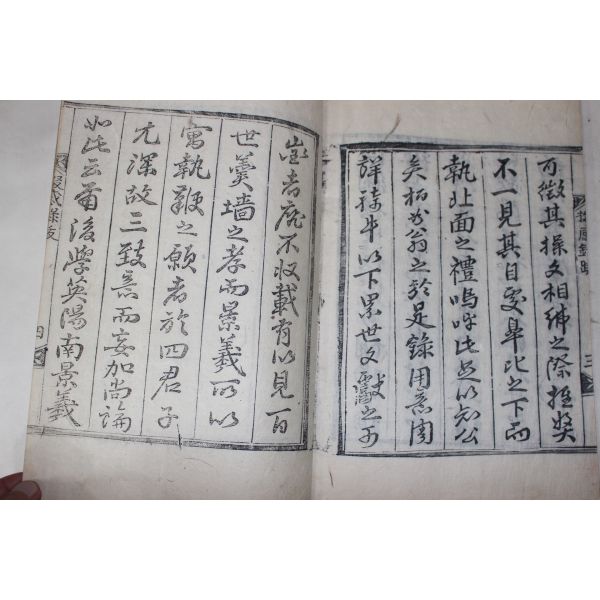 可徵其操文相紼之際推奬
不一見其自處皐比之下而
執北面之禮嗚呼此足以知公
矣栢後翁之於是錄用意周
詳積牛以下累世文獻之可
者靡不收載有以見百
世羹墻之孝而景羲所以
寓執鞭之願者於四君子
尤深故三致意而妄加尚論
如此云爾後學英陽南景羲
四
三